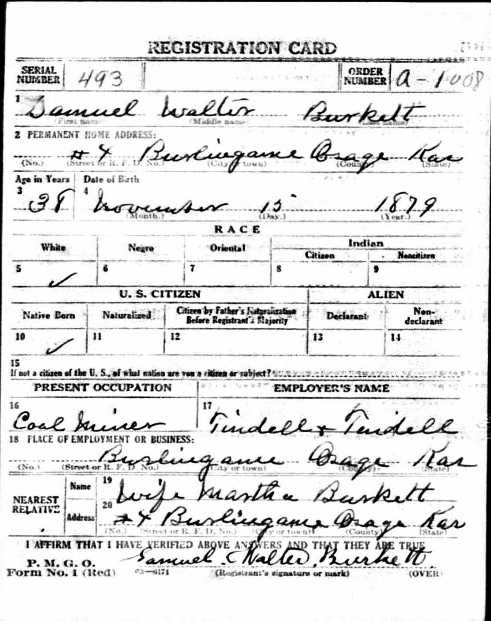 REGISTRATION CARD
SERIAL NUMBER 493 ORDER NUMBER a-1008
1 Samuel Walter Burkett
(First name) (Middle name) (Last name)
2 PERMANENT HOME ADDRESS:
#4 Burlingame Osage Kan
(No.) (Street or R. F. D. No.) (City or town) (County) (State)
Age in Years Date of Birth
3 38 4 November 15 1879
(Month.) (Day.) (Year.)
RACE
White Negro Oriental Indian
Citizen Noncitizen
5 ✓ 6 7 8 9
U. S. CITIZEN ALIEN
Native Born Naturalized Citizen by Father's Naturalization Before Registrant's Majority Declarant Non-declarant
10 ✓ 11 12 13 14
15
If not a citizen of the U. S., of what nation are you a citizen or subject?
PRESENT OCCUPATION EMPLOYER'S NAME
16 Coal Miner 17 Tindell & Tindell
18 PLACE OF EMPLOYMENT OR BUSINESS:
Burlingame Osage Kan
(No.) (Street or R. F. D. No.) (City or town) (County) (State)
NEAREST RELATIVE Name 19 Wife Martha Burkett
Address 20 #4 Burlingame Osage Kan
(No.) (Street or R. F. D. No.) (City or town) (County) (State)
I AFFIRM THAT I HAVE VERIFIED ABOVE ANSWERS AND THAT THEY ARE TRUE
P. M. G. O. Samuel Walter Burkett
Form No. 1 (Red) (Registrant's signature or mark) (OVER)